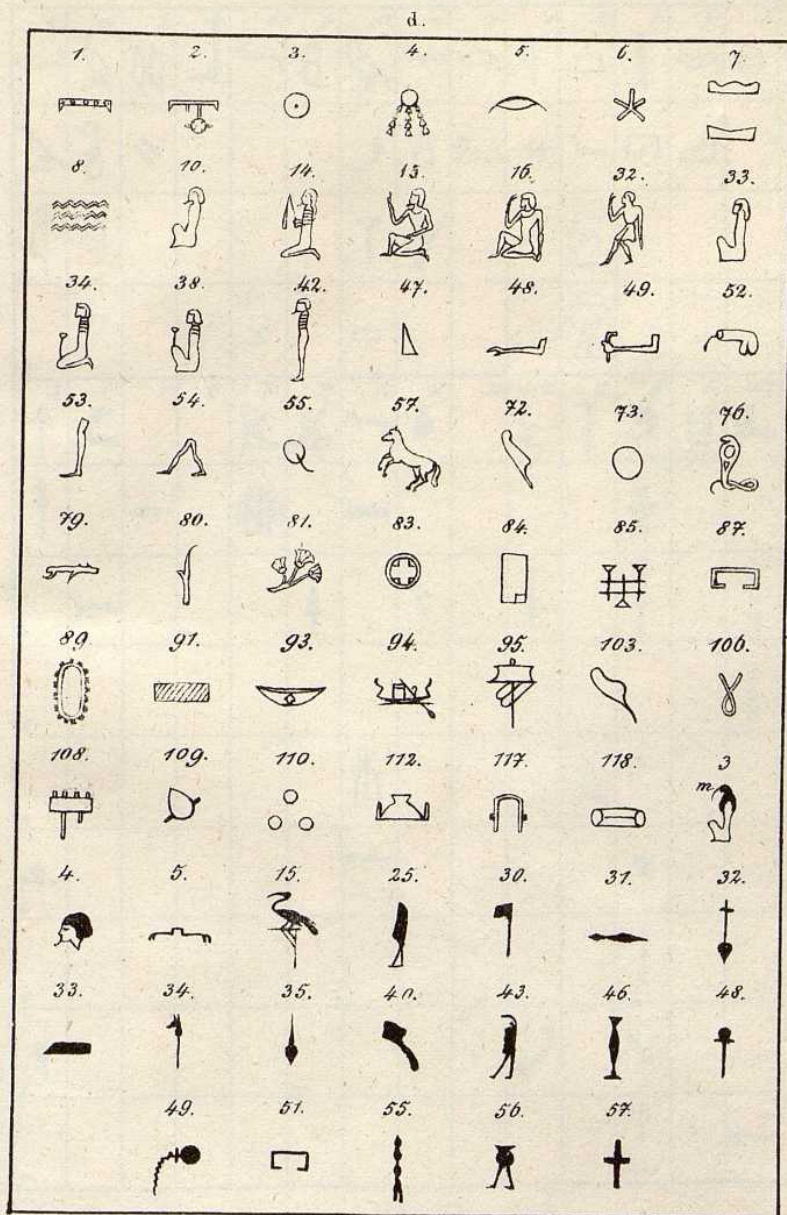 d.
1. 2. 3. 4. 5. 6. 7.
8. 10. 14. 15. 16. 32. 33.
34. 38. 42. 47. 48. 49. 52.
53. 54. 55. 57. 72. 73. 76.
79. 80. 81. 83. 84. 85. 87.
89. 91. 93. 94. 95. 103. 106.
108. 109. 110. 112. 117. 118. 3
m
4. 5. 15. 25. 30. 31. 32.
33. 34. 35. 40. 43. 46. 48.
49. 51. 55. 56. 57.